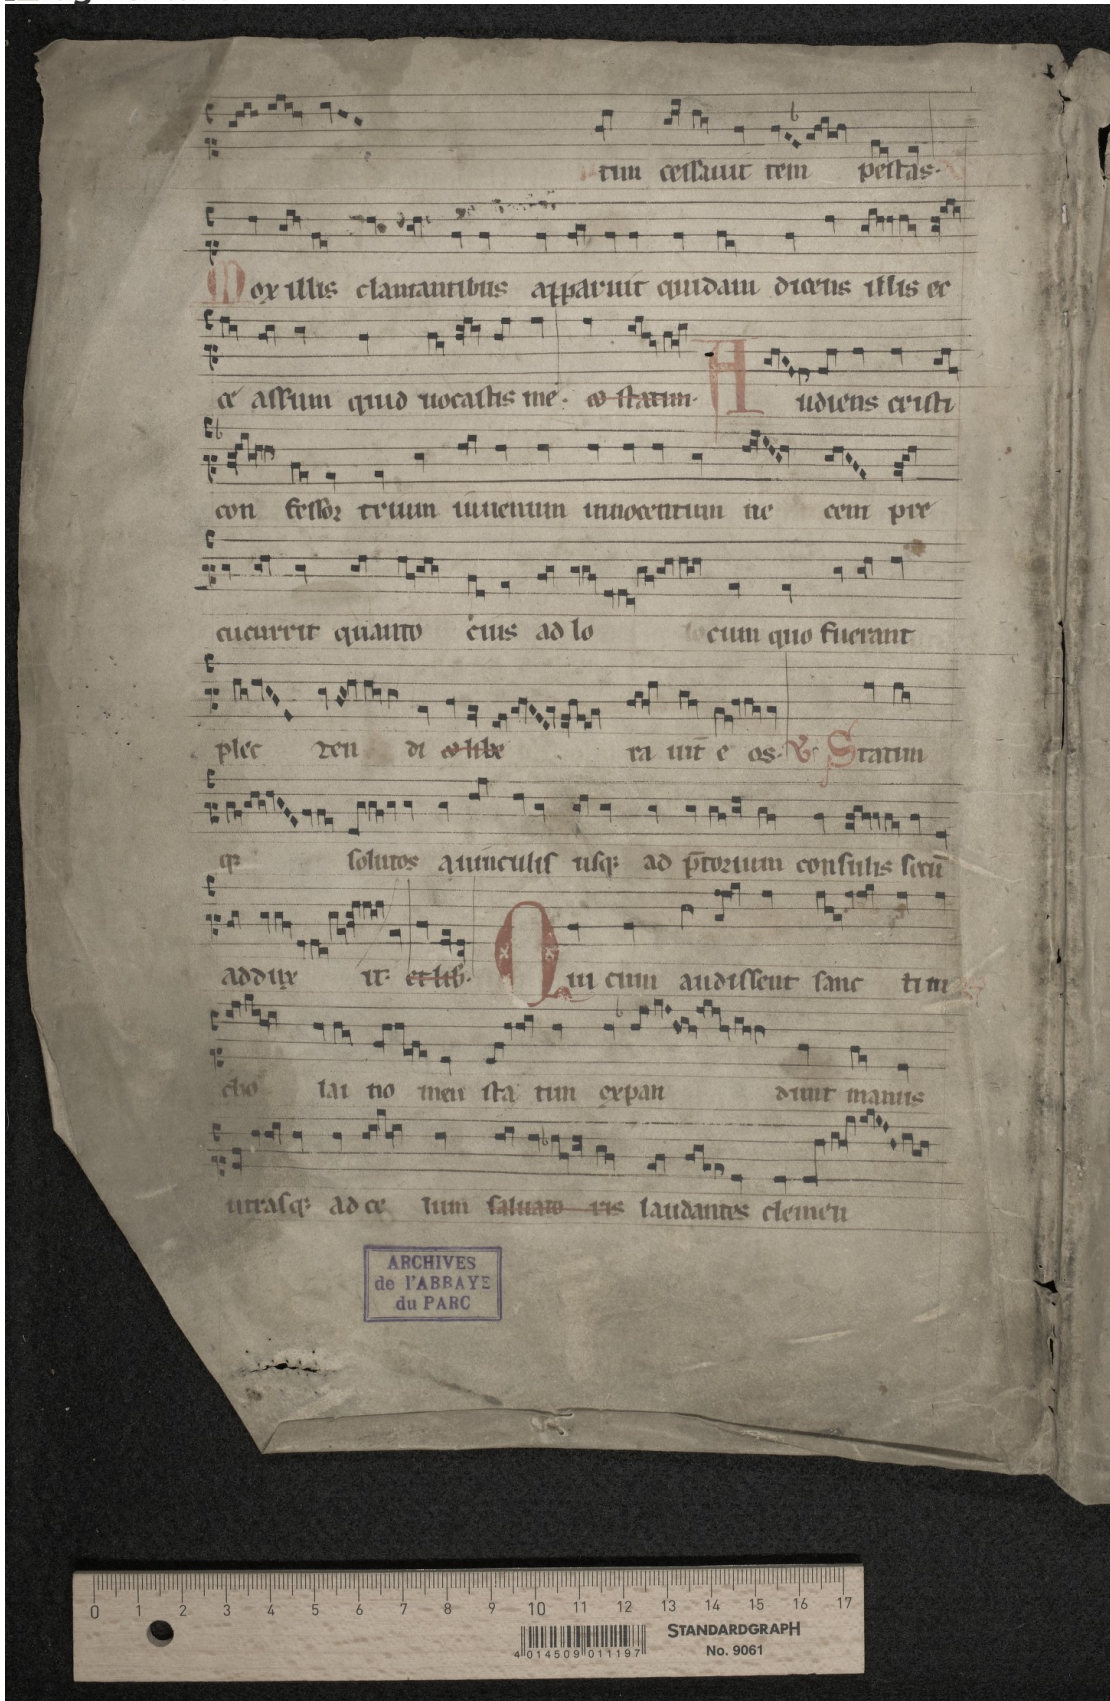 tim cessauit tem pestas.
Mox illis clamantibus apparuit quidam dicens illis ec
ce assum quid uocastis me. et statim. Audiens cristi
con fessor trium iuuenum innocentum ne cem pre
cucurrit quanto cius ad lo cum quo fuerant
plec ten di et libe ra uit e os. R. Statim
q3 solutos a uinculis usq3 ad p̄torium consulis secū
addux it. et lib. Qui cum audissent sanc ti ni
cho lai no men sta tim expan dunt manus
utrasq3 ad ce lum saluato ris laudantes clemen
ARCHIVES
de l'ABBAYE
du PARC
0 1 2 3 4 5 6 7 8 9 10 11 12 13 14 15 16 17
STANDARDGRAPH
4 014509 011197
No. 9061